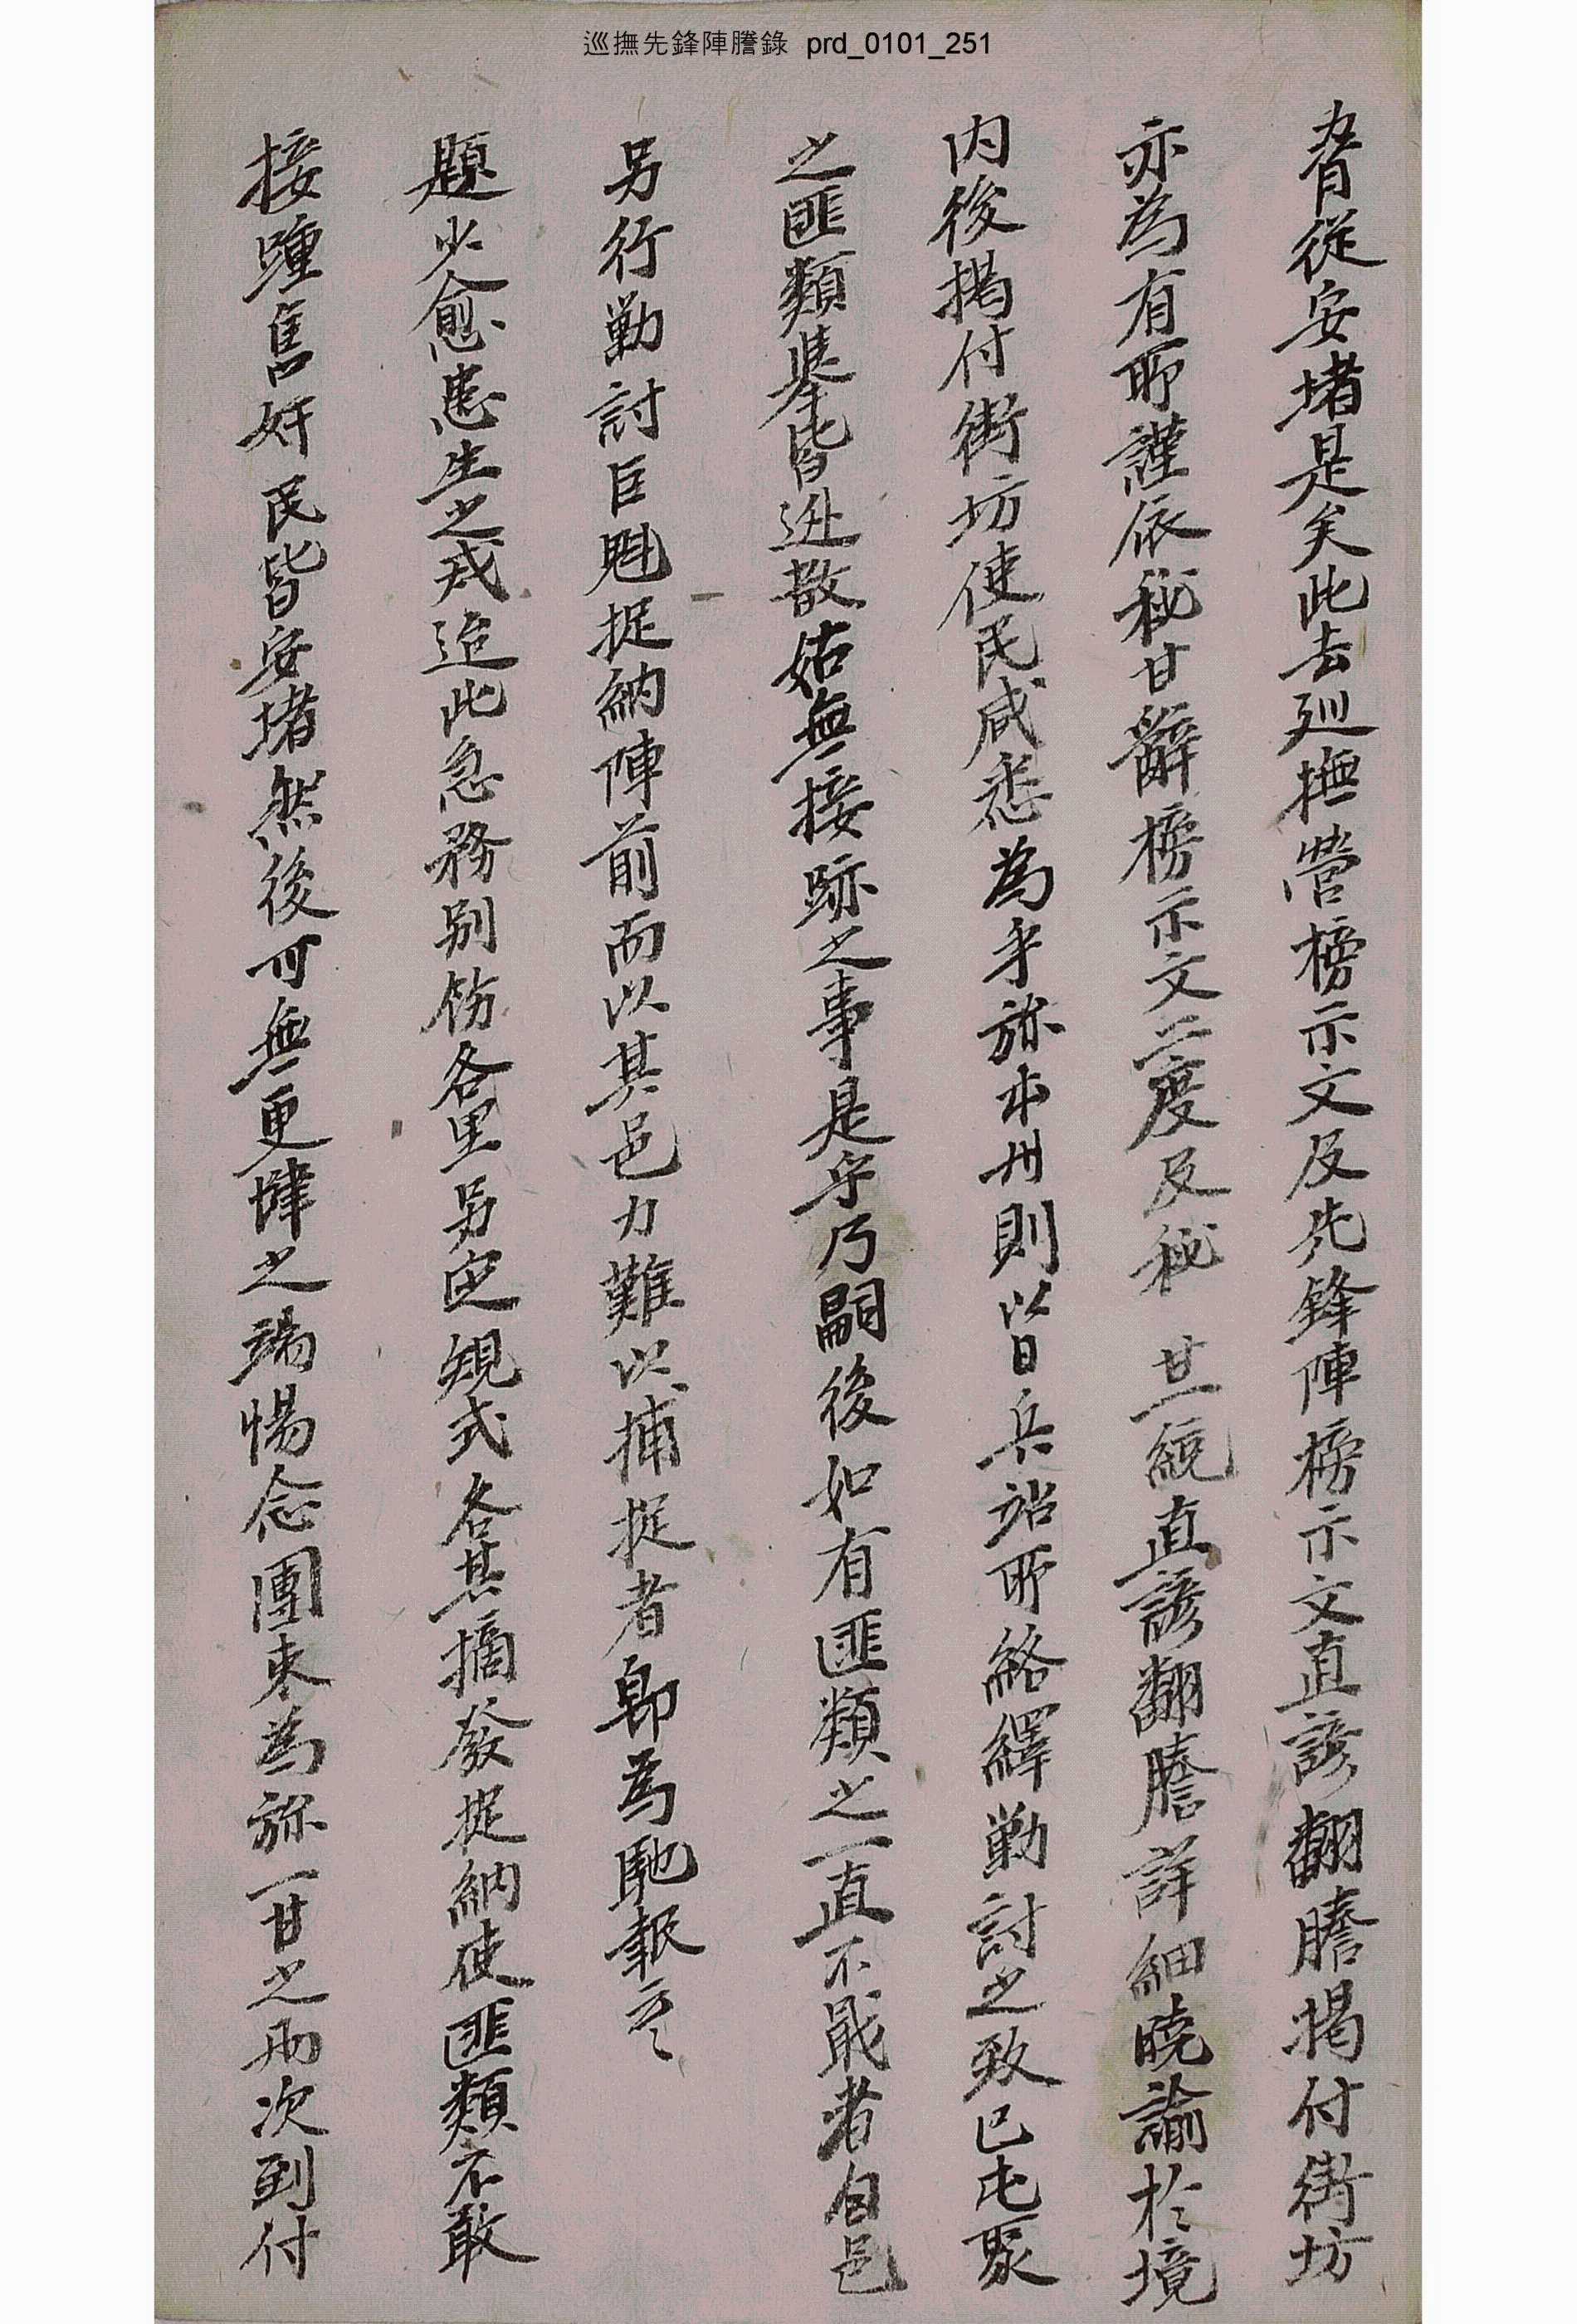 巡撫先鋒陣謄錄 prd_0101_251
脅從安堵是矣此去巡撫營榜示文及先鋒陣榜示文直諺翻謄揭付街坊
亦為有所謹依秘甘辭榜示文二度及秘甘一統直諺翻謄詳細曉諭於境
內後揭付街坊使民咸悉為乎旀本州則以日兵站所絡繹勦討之致已屯聚
之匪類擧皆迸散姑無接跡之事是乎乃嗣後如有匪類之一直不戢者自邑
另行勦討巨魁捉納陣前而以其邑力難以捕捉者卽為馳報云云
題少愈恚生之戎迨此急務別飭各里另定規式各其摘發捉納使匪類不敢
接踵售奸民皆安堵然後可無更肆之端惕念團束為旀一甘之兩次到付